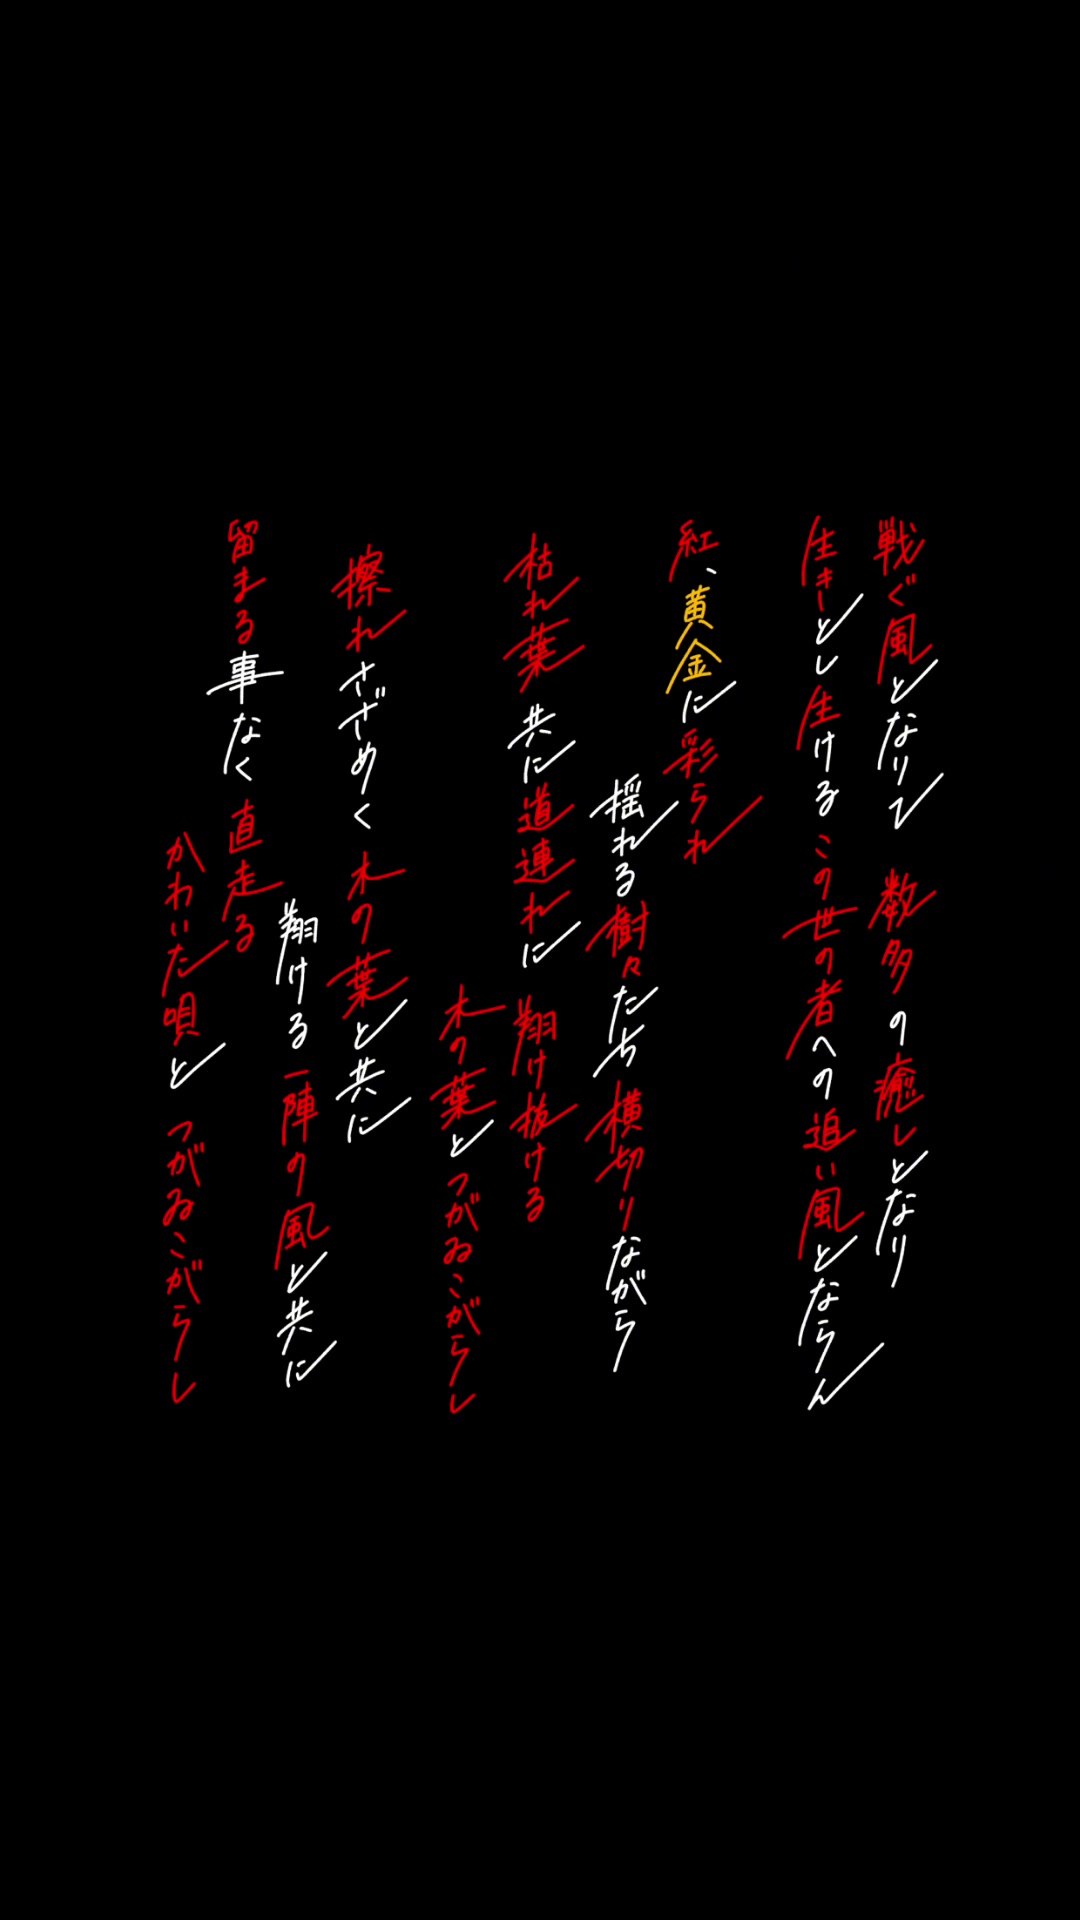 戦ぐ風となりて 数多の癒しとなり
生きとし生ける この世の者への追い風とならん
紅、黄金に彩られ
揺れる樹々たち 横切りながら
枯れ葉 共に道連れに 翔け抜ける
木の葉と つがゐこがらし
擦れざざめく 木の葉と共に
翔ける 一陣の風と共に
留まる事なく 直走る
かわいた唄と つがゐこがらし